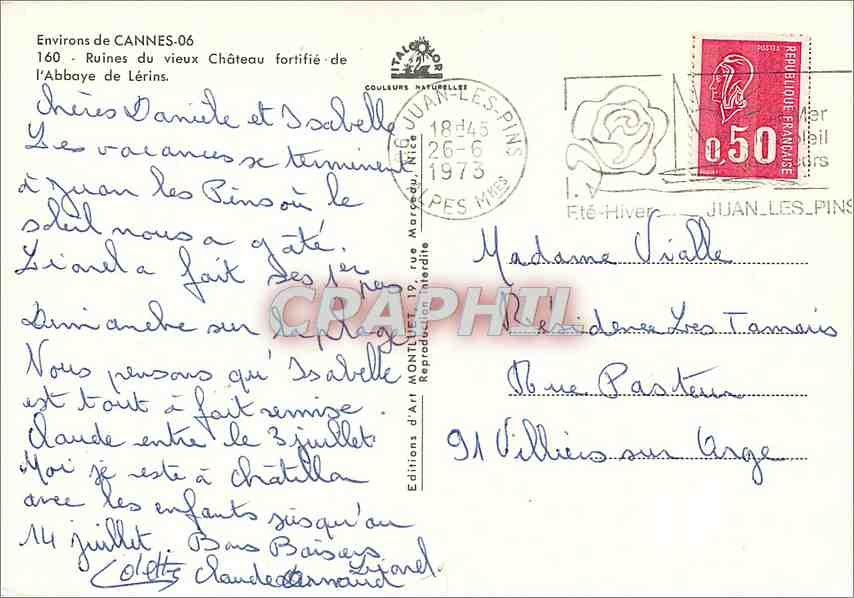 Environs de CANNES-06
160 - Ruines du vieux Château fortifié de
l'Abbaye de Lérins.
ITALCOLOR
COULEURS NATURELLES
06 JUAN-LES-PINS
18H45
26-6
1973
ALPES MMES
Mer
Soleil
Eté-Hiver JUAN_LES_PINS
POSTES
REPUBLIQUE FRANÇAISE
0,50
Chères Danièle et Isabelle
Les vacances se terminent
à Juan les Pins où le
soleil nous a gâté.
Lionel a fait ses 1er pas
Dimanche sur la plage
Nous pensons qu'Isabelle
est tout à fait remise.
Claude entre le 3 juillet
Moi je reste à Châtillon
avec les enfants jusqu'au
14 juillet. Bons Baisers
Colette Claude Arnaud Lionel
Editions d'Art MONTLUET, 19, rue Marceau, Nice
Reproduction Interdite
CPAPHIL
Madame Vialle
Résidence Les Tamaris
Rue Pasteur
91 Villiers sur Orge